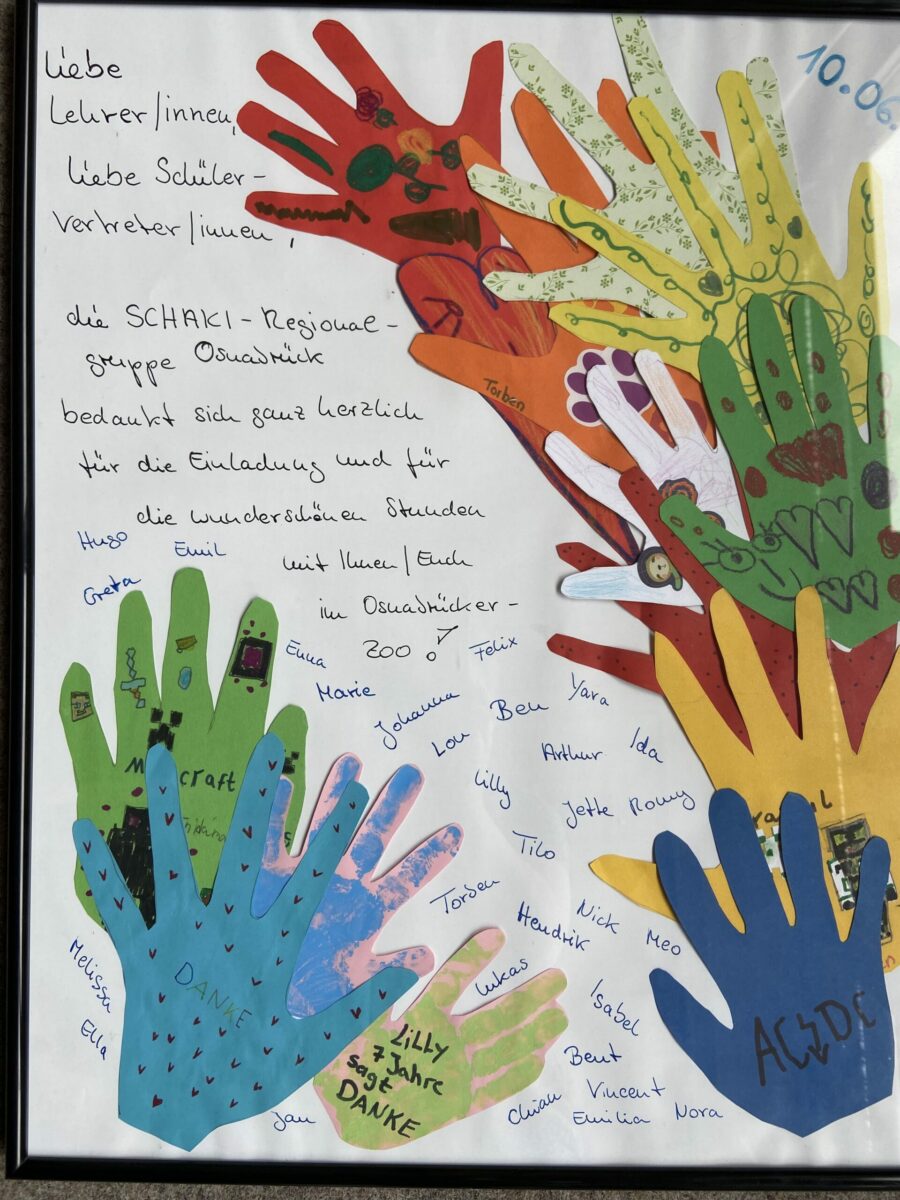 liebe
Lehrer/innen,
liebe Schüler-
vertreter/innen,
die SCHAKI-Regional-
gruppe Osnabrück
bedankt sich ganz herzlich
für die Einladung und für
die wunderschönen Stunden
mit Ihnen/Euch
im Osnabrücker-
Zoo!
10.06.
Torben
Hugo
Emil
Greta
Enna
Marie
Johanna
Felix
Ben
Yara
Lou
Arthur
Ida
Lilly
Jette
Romy
Tilo
Torben
Hendrik
Nick
Meo
Lukas
Isabel
Melissa
Ella
Bent
Jan
Vincent
Emilia
Nora
craft
DANKE
LiLLY
7 Jahre
sagt
DANKE
AC⚡DC